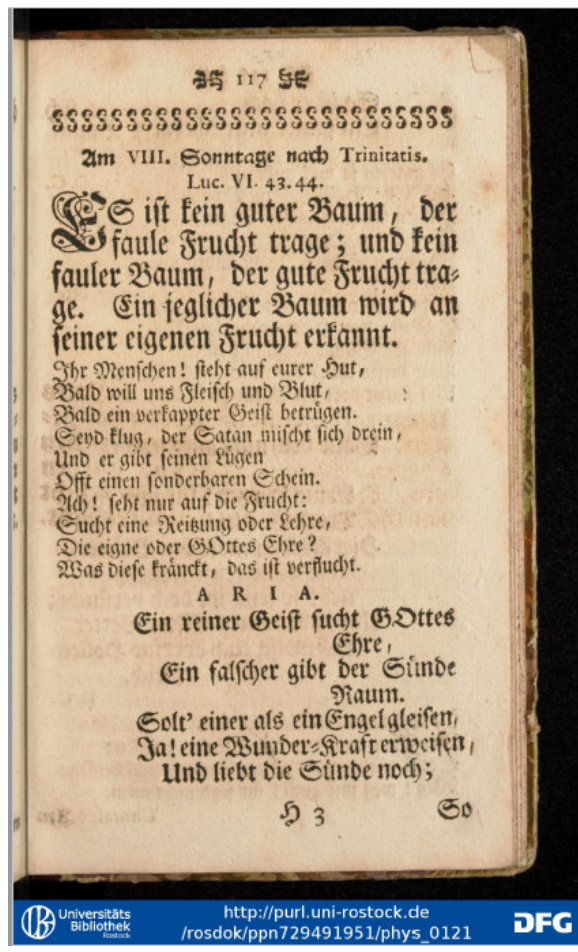 117
Am VIII. Sonntage nach Trinitatis.
Luc. VI. 43. 44.
ES ist kein guter Baum, der
faule Frucht trage; und kein
fauler Baum, der gute Frucht tra-
ge. Ein jeglicher Baum wird an
seiner eigenen Frucht erkannt.
Ihr Menschen! steht auf eurer Hut,
Bald will uns Fleisch und Blut,
Bald ein verkappter Geist betrügen.
Seyd klug, der Satan mischt sich drein,
Und er gibt seinen Lügen
Offt einen sonderbaren Schein.
Ach! seht nur auf die Frucht:
Sucht eine Reitzung oder Lehre,
Die eigne oder GOttes Ehre?
Was diese kränckt, das ist verflucht.
ARIA.
Ein reiner Geist sucht GOttes
Ehre,
Ein falscher gibt der Sünde
Raum.
Solt' einer als ein Engel gleisen,
Ja! eine Wunder-Kraft erweisen,
Und liebt die Sünde noch;
H 3 So
Universitäts
Bibliothek
Rostock
http://purl.uni-rostock.de
/rosdok/ppn729491951/phys_0121
DFG